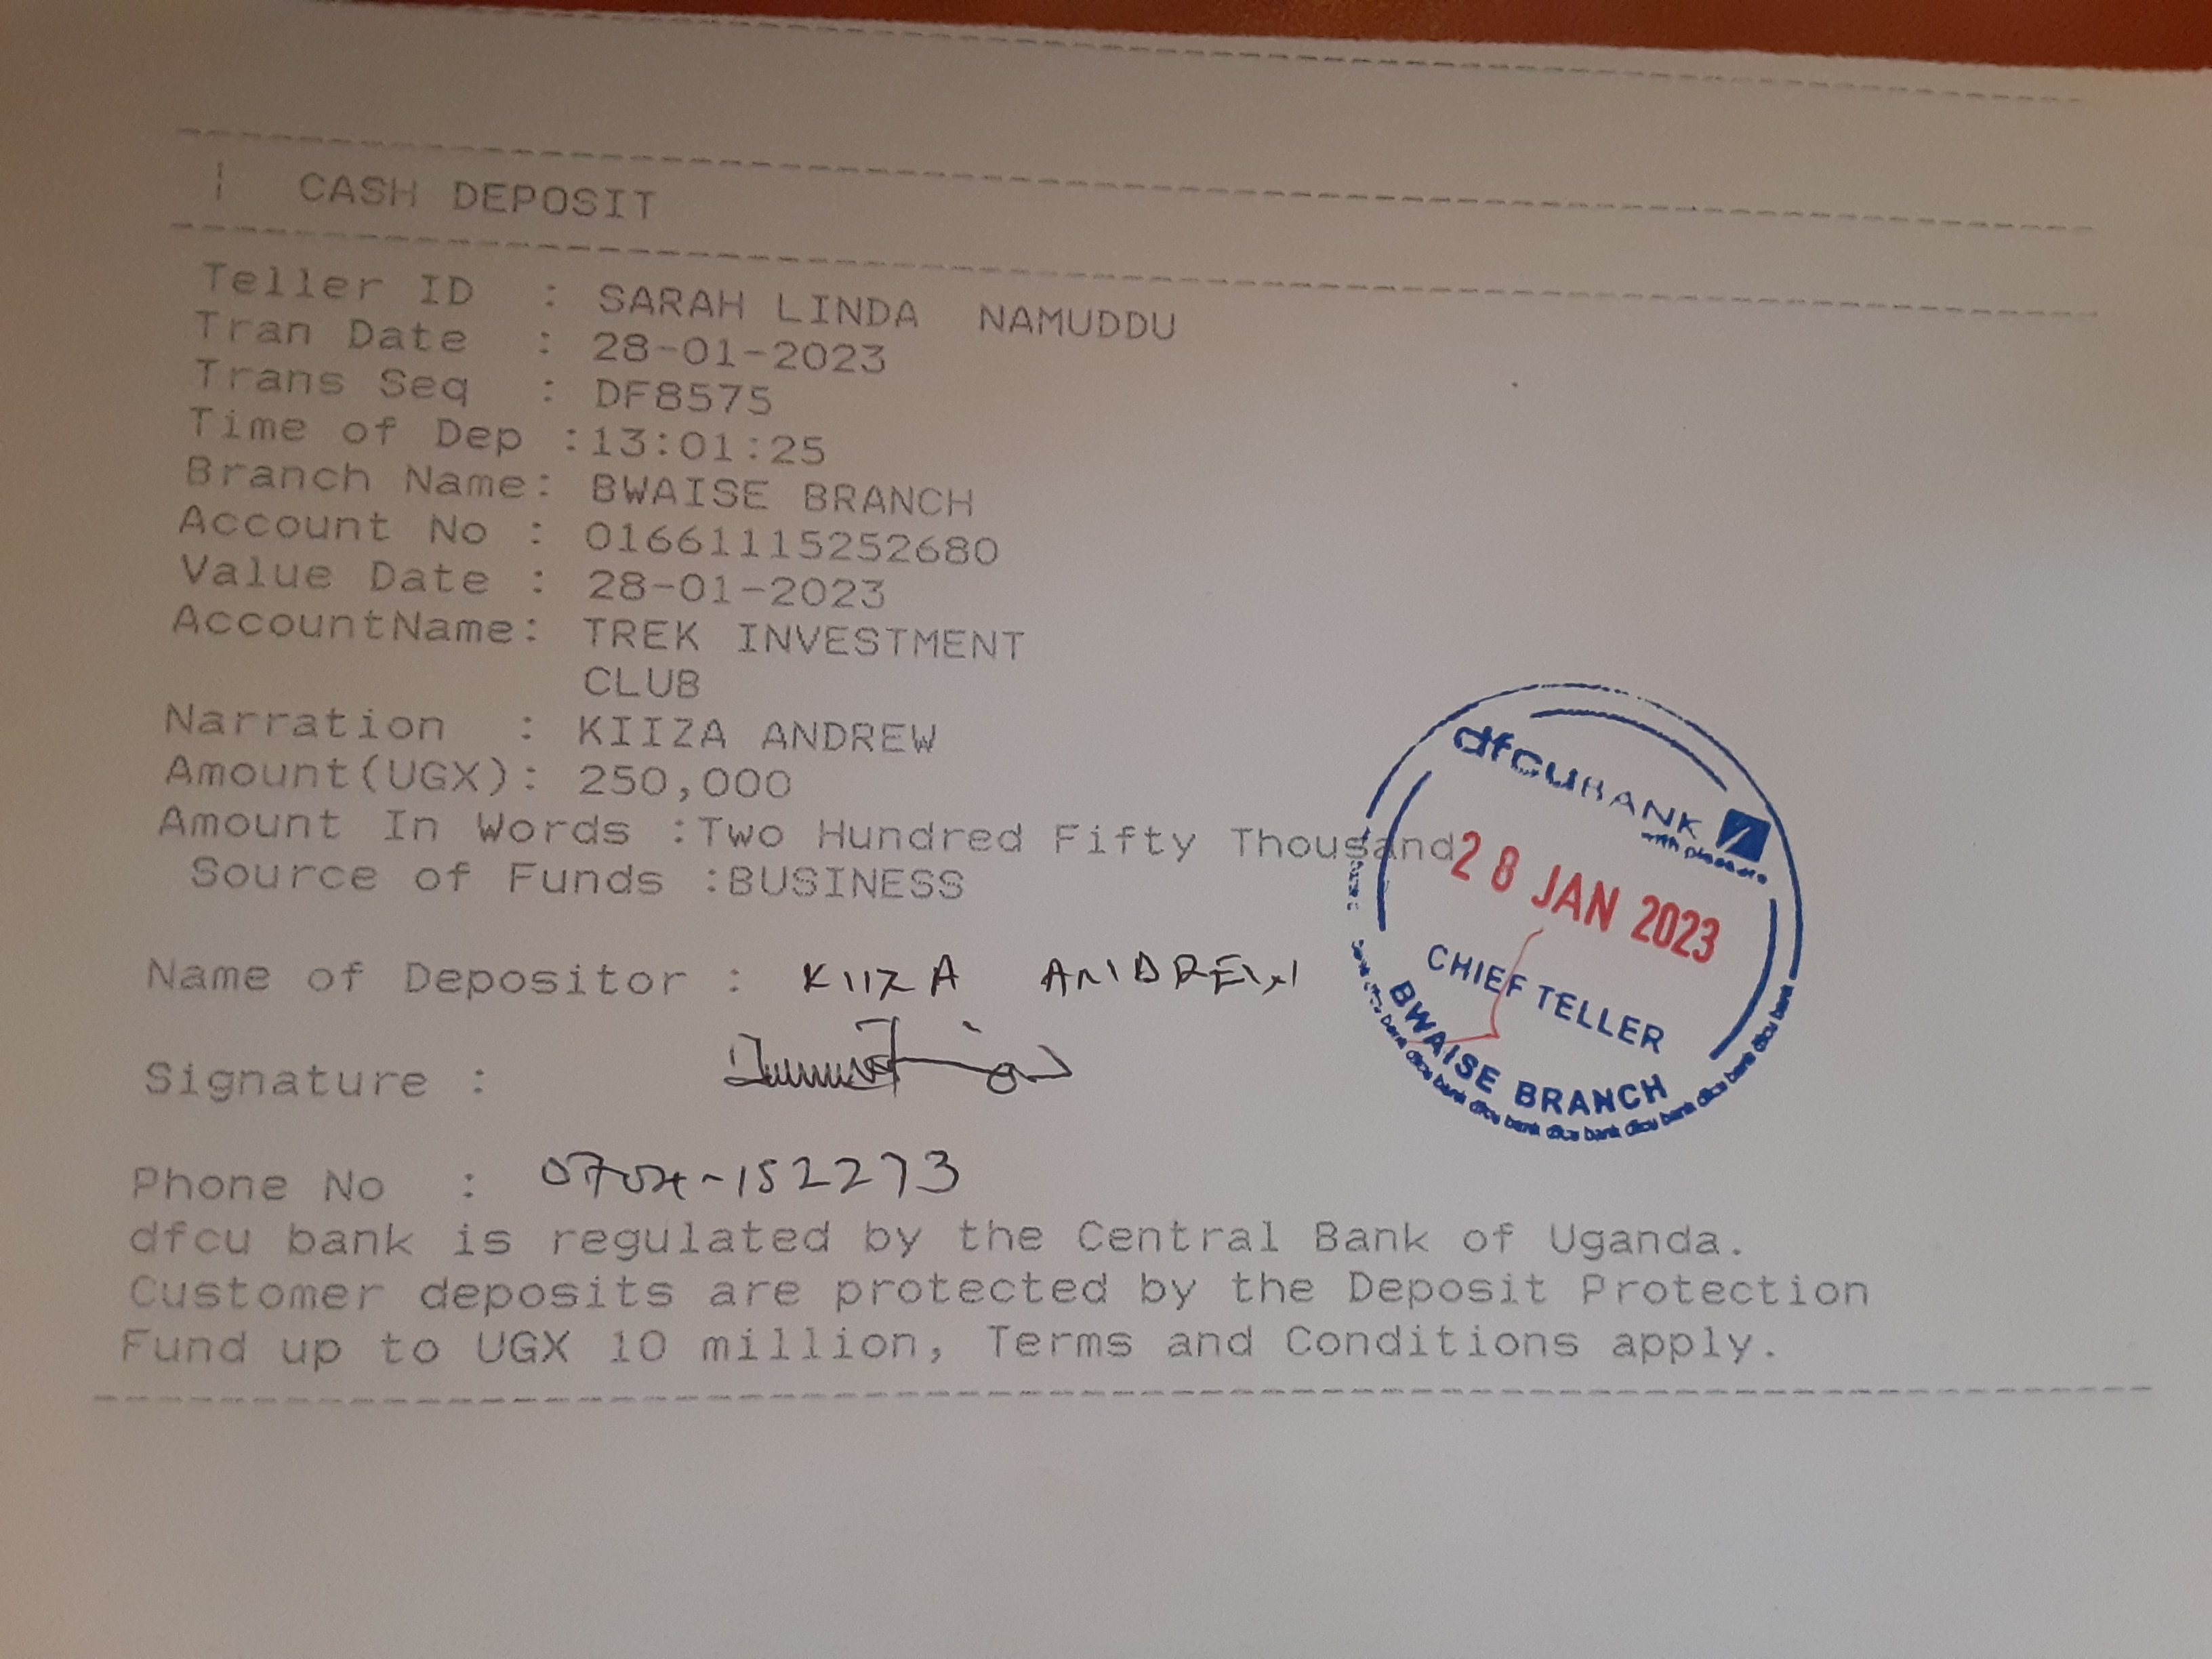 | CASH DEPOSIT
Teller ID : SARAH LINDA NAMUDDU
Tran Date : 28-01-2023
Trans Seq : DF8575
Time of Dep :13:01:25
Branch Name: BWAISE BRANCH
Account No : 01661115252680
Value Date : 28-01-2023
AccountName: TREK INVESTMENT
CLUB
Narration : KIIZA ANDREW
Amount(UGX): 250,000
Amount In Words :Two Hundred Fifty Thousand
Source of Funds :BUSINESS
Name of Depositor : KIIZA ANDREW
Signature :
Phone No :
dfcu bank is regulated by the Central Bank of Uganda.
Customer deposits are protected by the Deposit Protection
Fund up to UGX 10 million, Terms and Conditions apply.
dfcu BANK
28 JAN 2023
CHIEF TELLER
BWAISE BRANCH